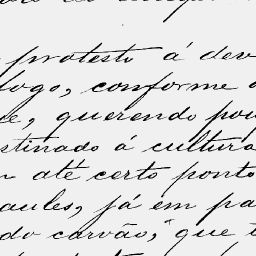 protesto á dev
logo, conforme
e, querendo pou
stinado á cultura
até certo ponto
aules, já em pa
do carvão, que